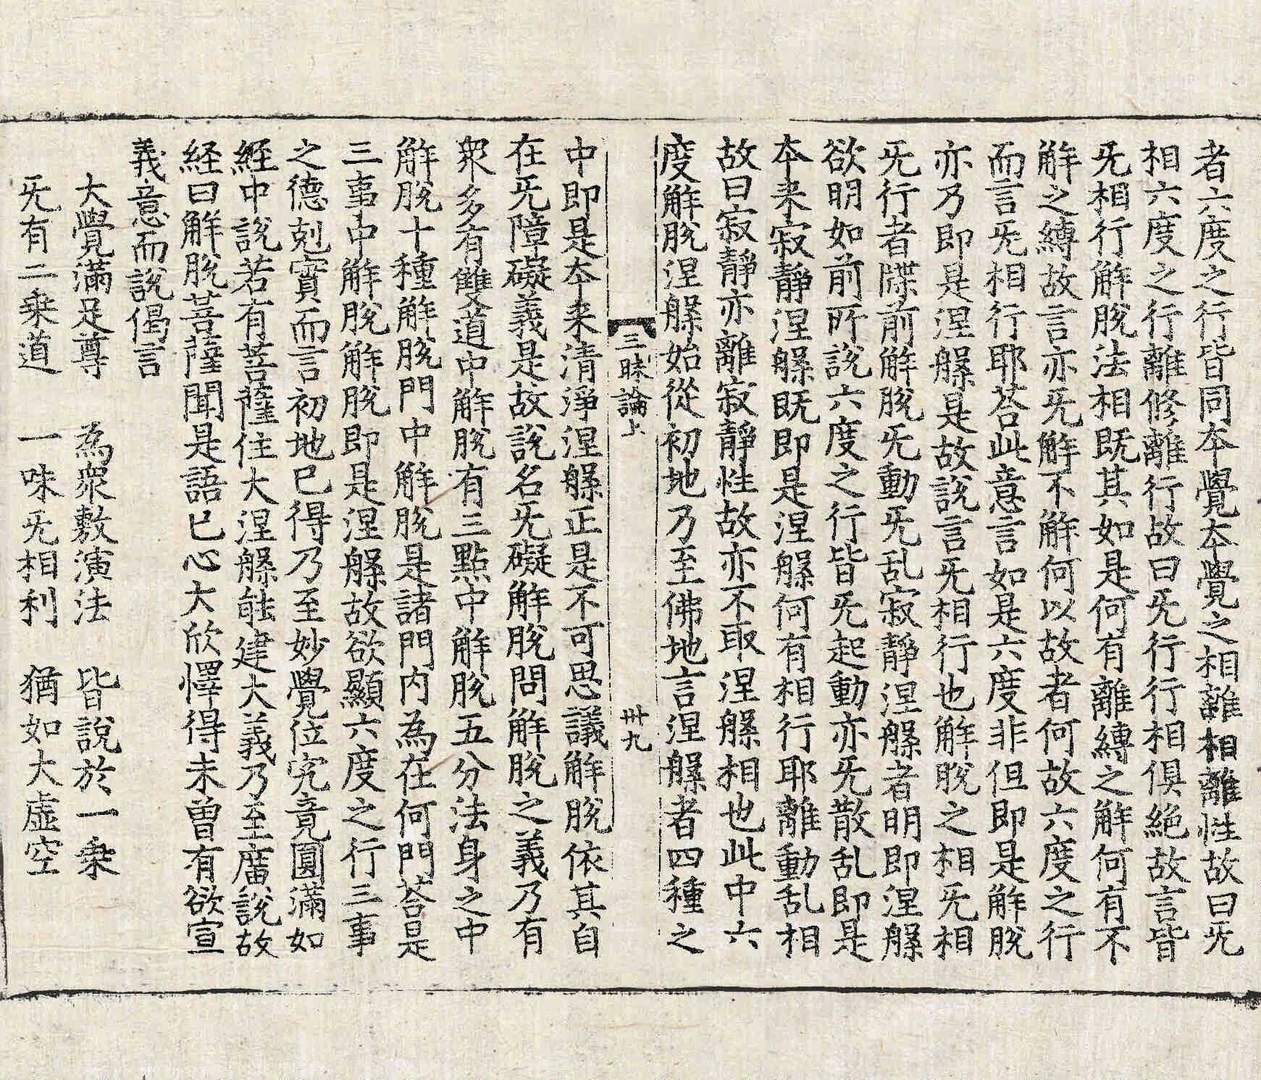 者六度之行皆同本覺本覺之相離相離性故曰旡
相六度之行離修離行故曰旡行行相俱絶故言皆
旡相行解脫法相既其如是何有離縛之解何有不
解之縛故言亦旡解不解何以故者何故六度之行
而言旡相行耶荅此意言如是六度非但即是解脫
亦乃即是涅槃是故說言旡相行也解脫之相旡相
旡行者牒前解脫旡動旡乱寂靜涅槃者明即涅槃
欲明如前所說六度之行皆旡起動亦旡散乱即是
本来寂靜涅槃既即是涅槃何有相行耶離動乱相
故曰寂靜亦離寂靜性故亦不取涅槃相也此中六
度解脫涅槃始從初地乃至佛地言涅槃者四種之
三昧論上 卅九
中即是本来清淨涅槃正是不可思議解脫依其自
在旡障礙義是故說名旡礙解脫問解脫之義乃有
衆多有雙道中解脫有三點中解脫五分法身之中
解脫十種解脫門中解脫是諸門內為在何門荅是
三事中解脫解脫即是涅槃故欲顯六度之行三事
之德剋實而言初地已得乃至妙覺位究竟圓滿如
經中說若有菩薩住大涅槃能建大義乃至廣說故
経曰解脫菩薩聞是語已心大欣懌得未曾有欲宣
義意而說偈言
大覺滿足尊 為衆敷演法 皆說於一乗
旡有二乗道 一味旡相利 猶如大虛空